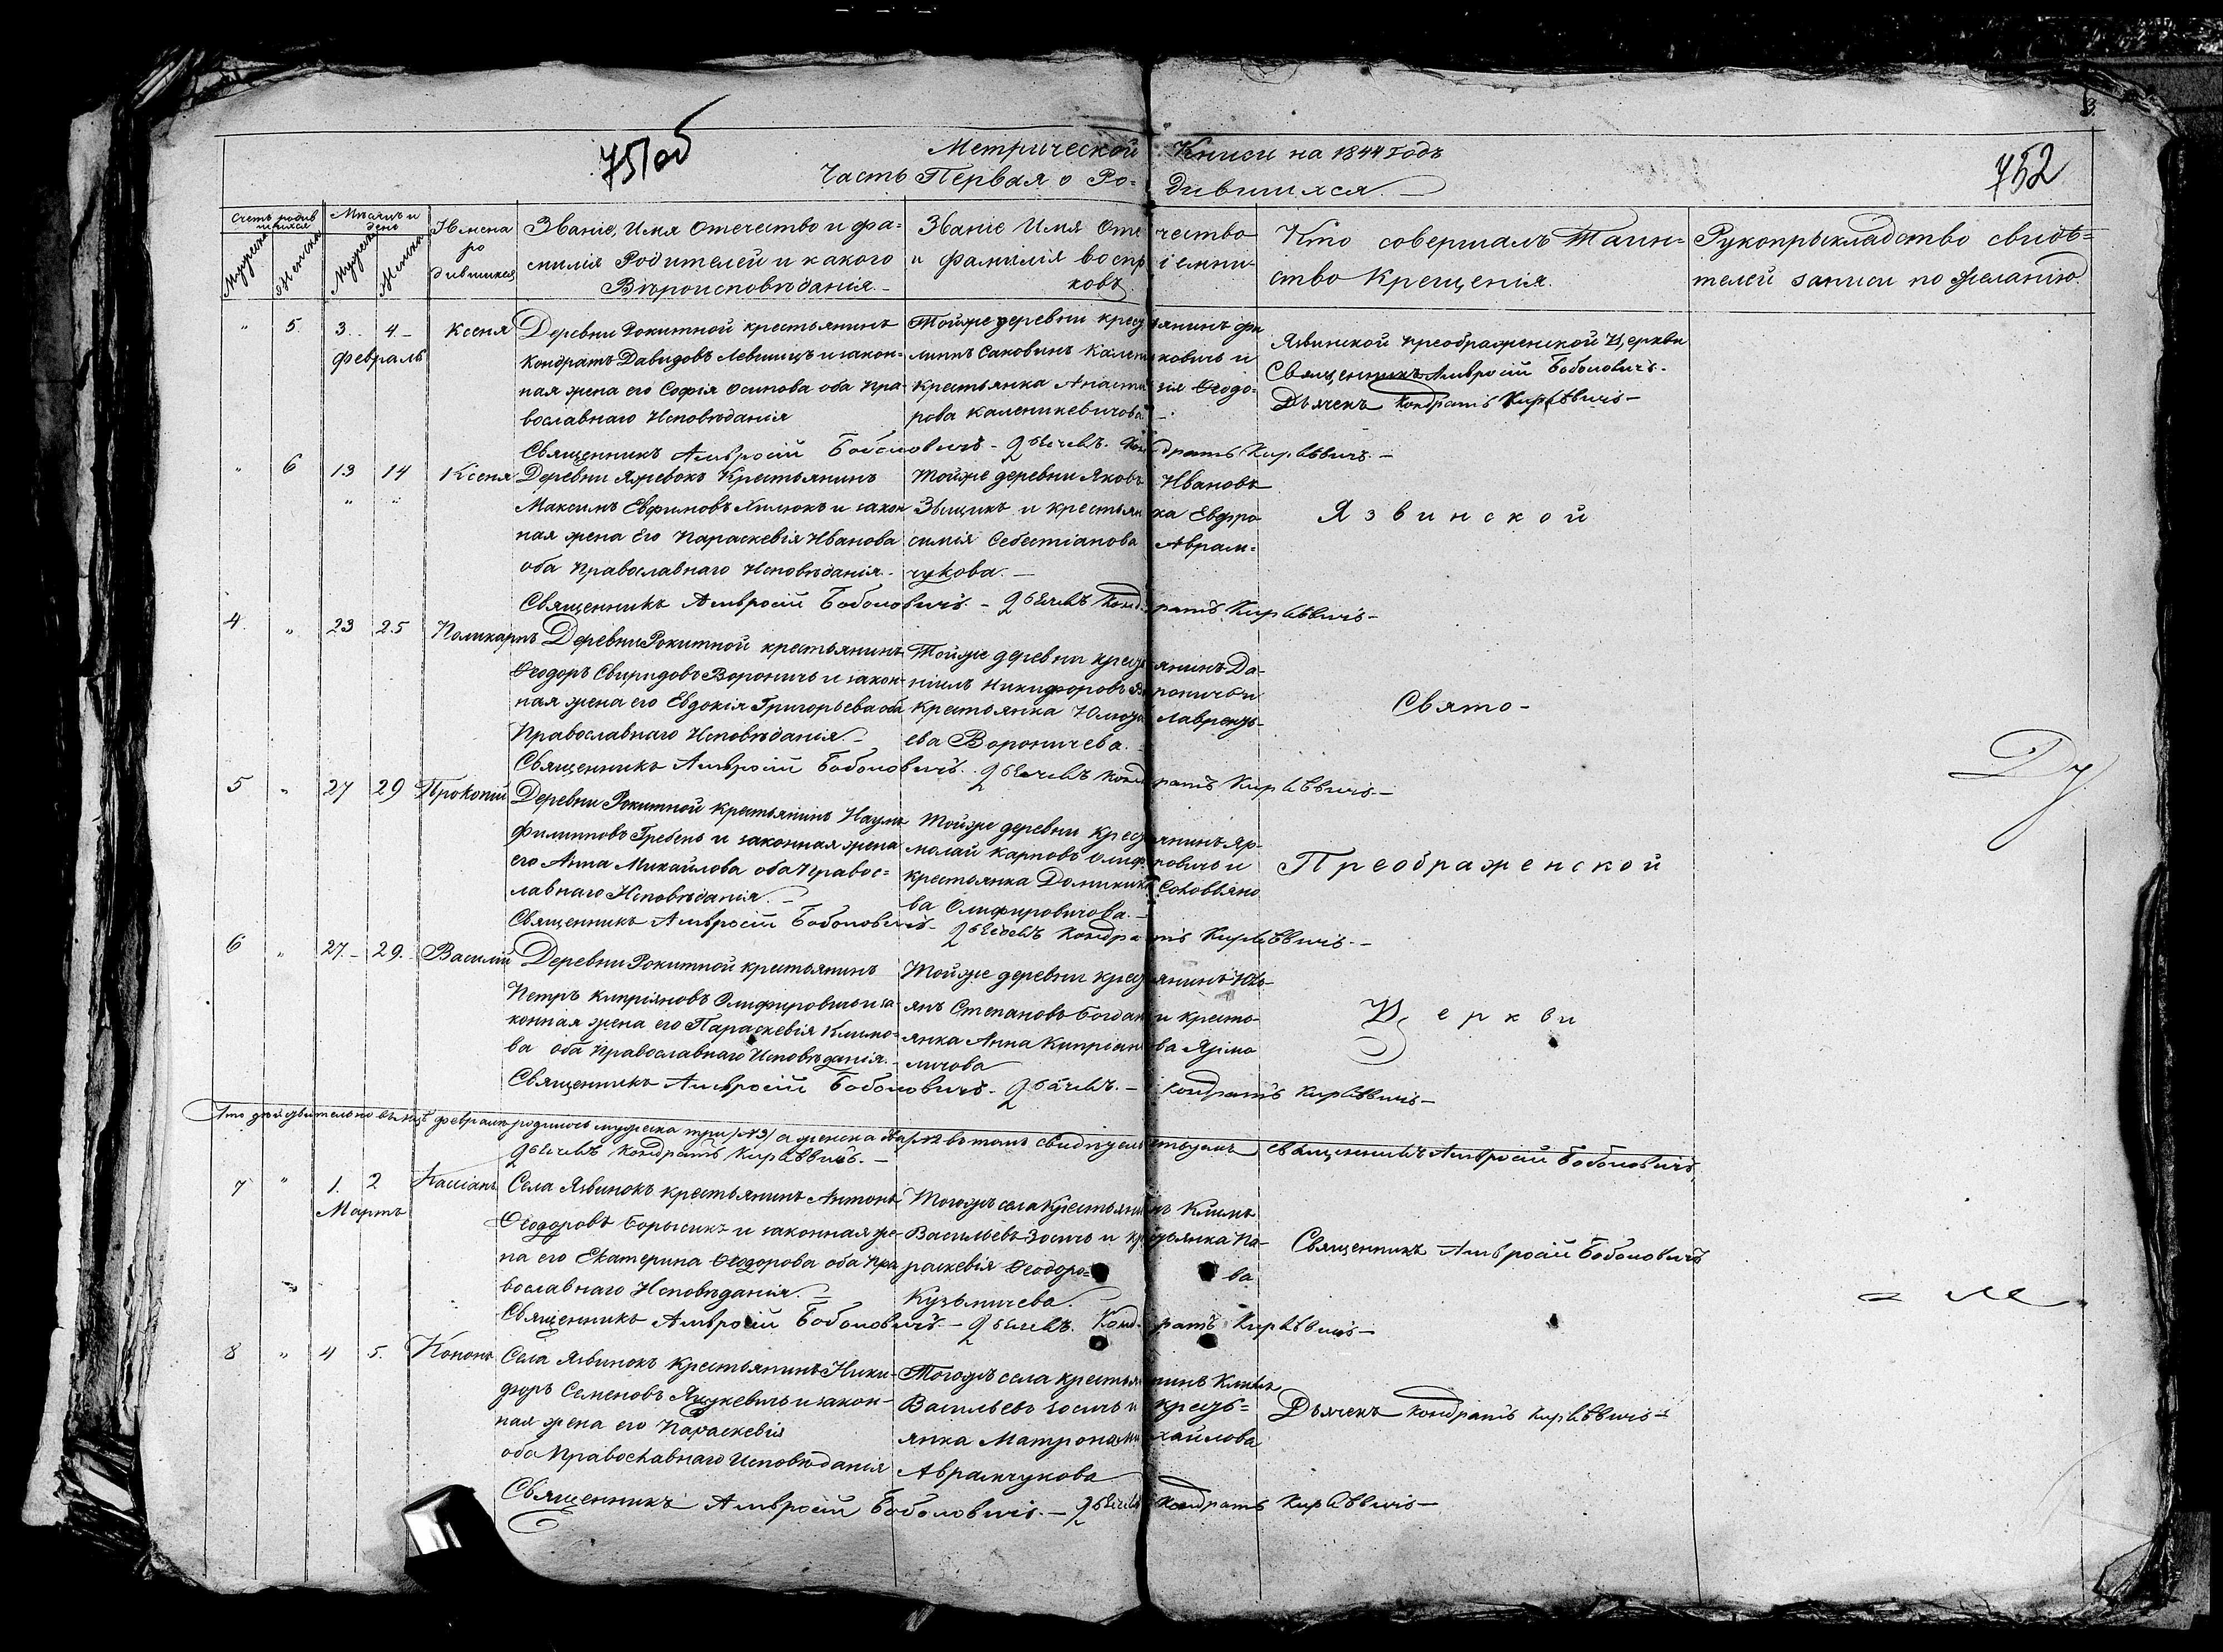 751об
Метрической Книги на 1844 годъ
752
3.
Часть Первая о Ро-дившихся.
Счетъ родившихся
Мѣсяцъ и день
Имена родившихся
Званіе, Имя Отечество и фа-
милія Родителей и какого
Вѣроисповѣданія.
Званіе Имя Отечество
и фамилія воспріемни-
ковъ
Кто совершалъ Таин-
ство Крещенія.
Рукоприкладство свидѣ-
телей записи по желанію.
Мужеска
Женска
" 5. 3. 4. Ксеня
Февраль
Деревни Рокитной крестьянинъ
Кондратъ Давидовъ Левшицъ и закон-
ная жена его Софія Осипова оба Пра-
вославнаго Исповѣданія
Тойже деревни крестьянинъ Фи
липпъ Саковинъ Каленковичь и
Крестьянка Анастасія Ѳеодо-
рова Каленикевичова.
Язвинской Преображенской Церкви
Священникъ Амвросій Боболовичъ.
Дьячекъ Кондратъ
Священникъ Амвросій Боболовичъ - Дьячекъ Кондратъ
" 6 13 14 Ксеня
Деревни Яжевокъ Крестьянинъ
Максимъ Евфимовъ Хилюкъ и закон
ная жена Его Параскевія Иванова
оба Православнаго Исповѣданія.
Тойже деревни Яковъ Ивановъ
и крестьянка Евфро
синія Себестіанова Аврам-
чукова.
Язвинской
Священникъ Амвросій Боболовичъ. - Дьячекъ Кондратъ
4. " 23 25 Поликарпъ
Деревни Рокитной крестьянинъ
Ѳеодоръ Свиридовъ Вороничь и закон-
ная жена его Евдокія Григорьева оба
Православнаго Исповѣданія
Тойже деревни крестьянинъ Да-
ніилъ Никифоровъ Вороничь и
Крестьянка Юлія Лаврентъ-
ева Вороничева.
Свято-
Священникъ Амвросій Боболовичъ. Дьячекъ Кондратъ
5 " 27 29 Прокопій
Деревни Рокитной крестьянинъ Наумъ
Филипповъ Гребень и законная жена
его Анна Михайлова оба Правос-
лавнаго Исповѣданія.
Тойже деревни крестьянинъ Яр-
молай Карповъ Олифировичь и
Крестьянка Доминика
ва Олифировичова.
Преображенской
Священникъ Амвросій Боболовичъ - Дьячекъ Кондратъ
6 " 27. 29. Василій
Деревни Рокитной крестьянинъ
Петръ Кипріяновъ Олифировичь и за-
конная жена его Параскевія Климо-
ва оба Православнаго Исповѣданія.
Тойже деревни крестьянинъ
янъ Степановъ Богдан и кресть-
янка Анна Кипріанова
личова
Церкви
Священникъ Амвросій Боболовичъ - Дьячекъ. - Кондратъ
Что дѣйствительно въ мцѣ февралѣ родилось мужеска три /№3/ а женска два /№2 въ томъ свидѣтельствуемъ Священникъ Амвросій Боболовичъ,
Дьячекъ Кондратъ
7 " 1. 2 Кассіанъ
Мартъ
Села Язвинокъ крестьянинъ Антонъ
Ѳеодоровъ Борысикъ и законная же-
на его Екатерина Ѳеодорова оба Пра
вославнаго Исповѣданія.
Тогожъ села Крестьянинъ Климъ
Васильевъ Зосичь и крестьянка Па-
раскевія Ѳеодоро-ва
Кузьмичева.
Священникъ Амвросій Боболовичъ
Священникъ Амвросій Боболовичъ - Дьячекъ. Кондратъ
8 " 4 5. Кононъ
Села Язвинокъ крестьянинъ Ники-
форъ Семеновъ и закон-
ная жена его Параскевія
оба Православнаго Исповѣданія
Тогожъ села крестьянинъ Климъ
Васильевъ Зосичь и кресть-
янка Матрона Михайлова
Аврамчукова
Дьячекъ Кондратъ
Священникъ Амвросій Боболовичъ. - Дьячекъ Кондратъ